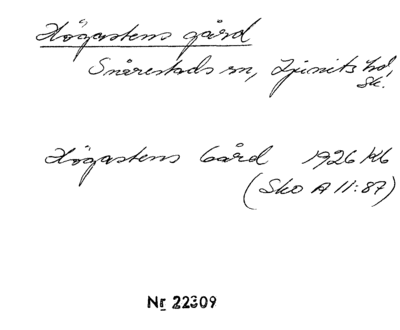 Högastens gård
Snårestads sn, Ljunits hd,
Sk.
Högastens Gård 1926 Kb
(Sko A 11:87)
Nr 22309